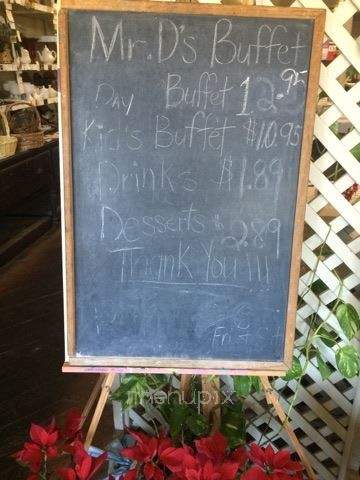 Mr. D's Buffet
Day Buffet 12.95
Kid's Buffet $10.95
Drinks $1.89
Desserts $2.89
Thank You!!!
Fri
menupix